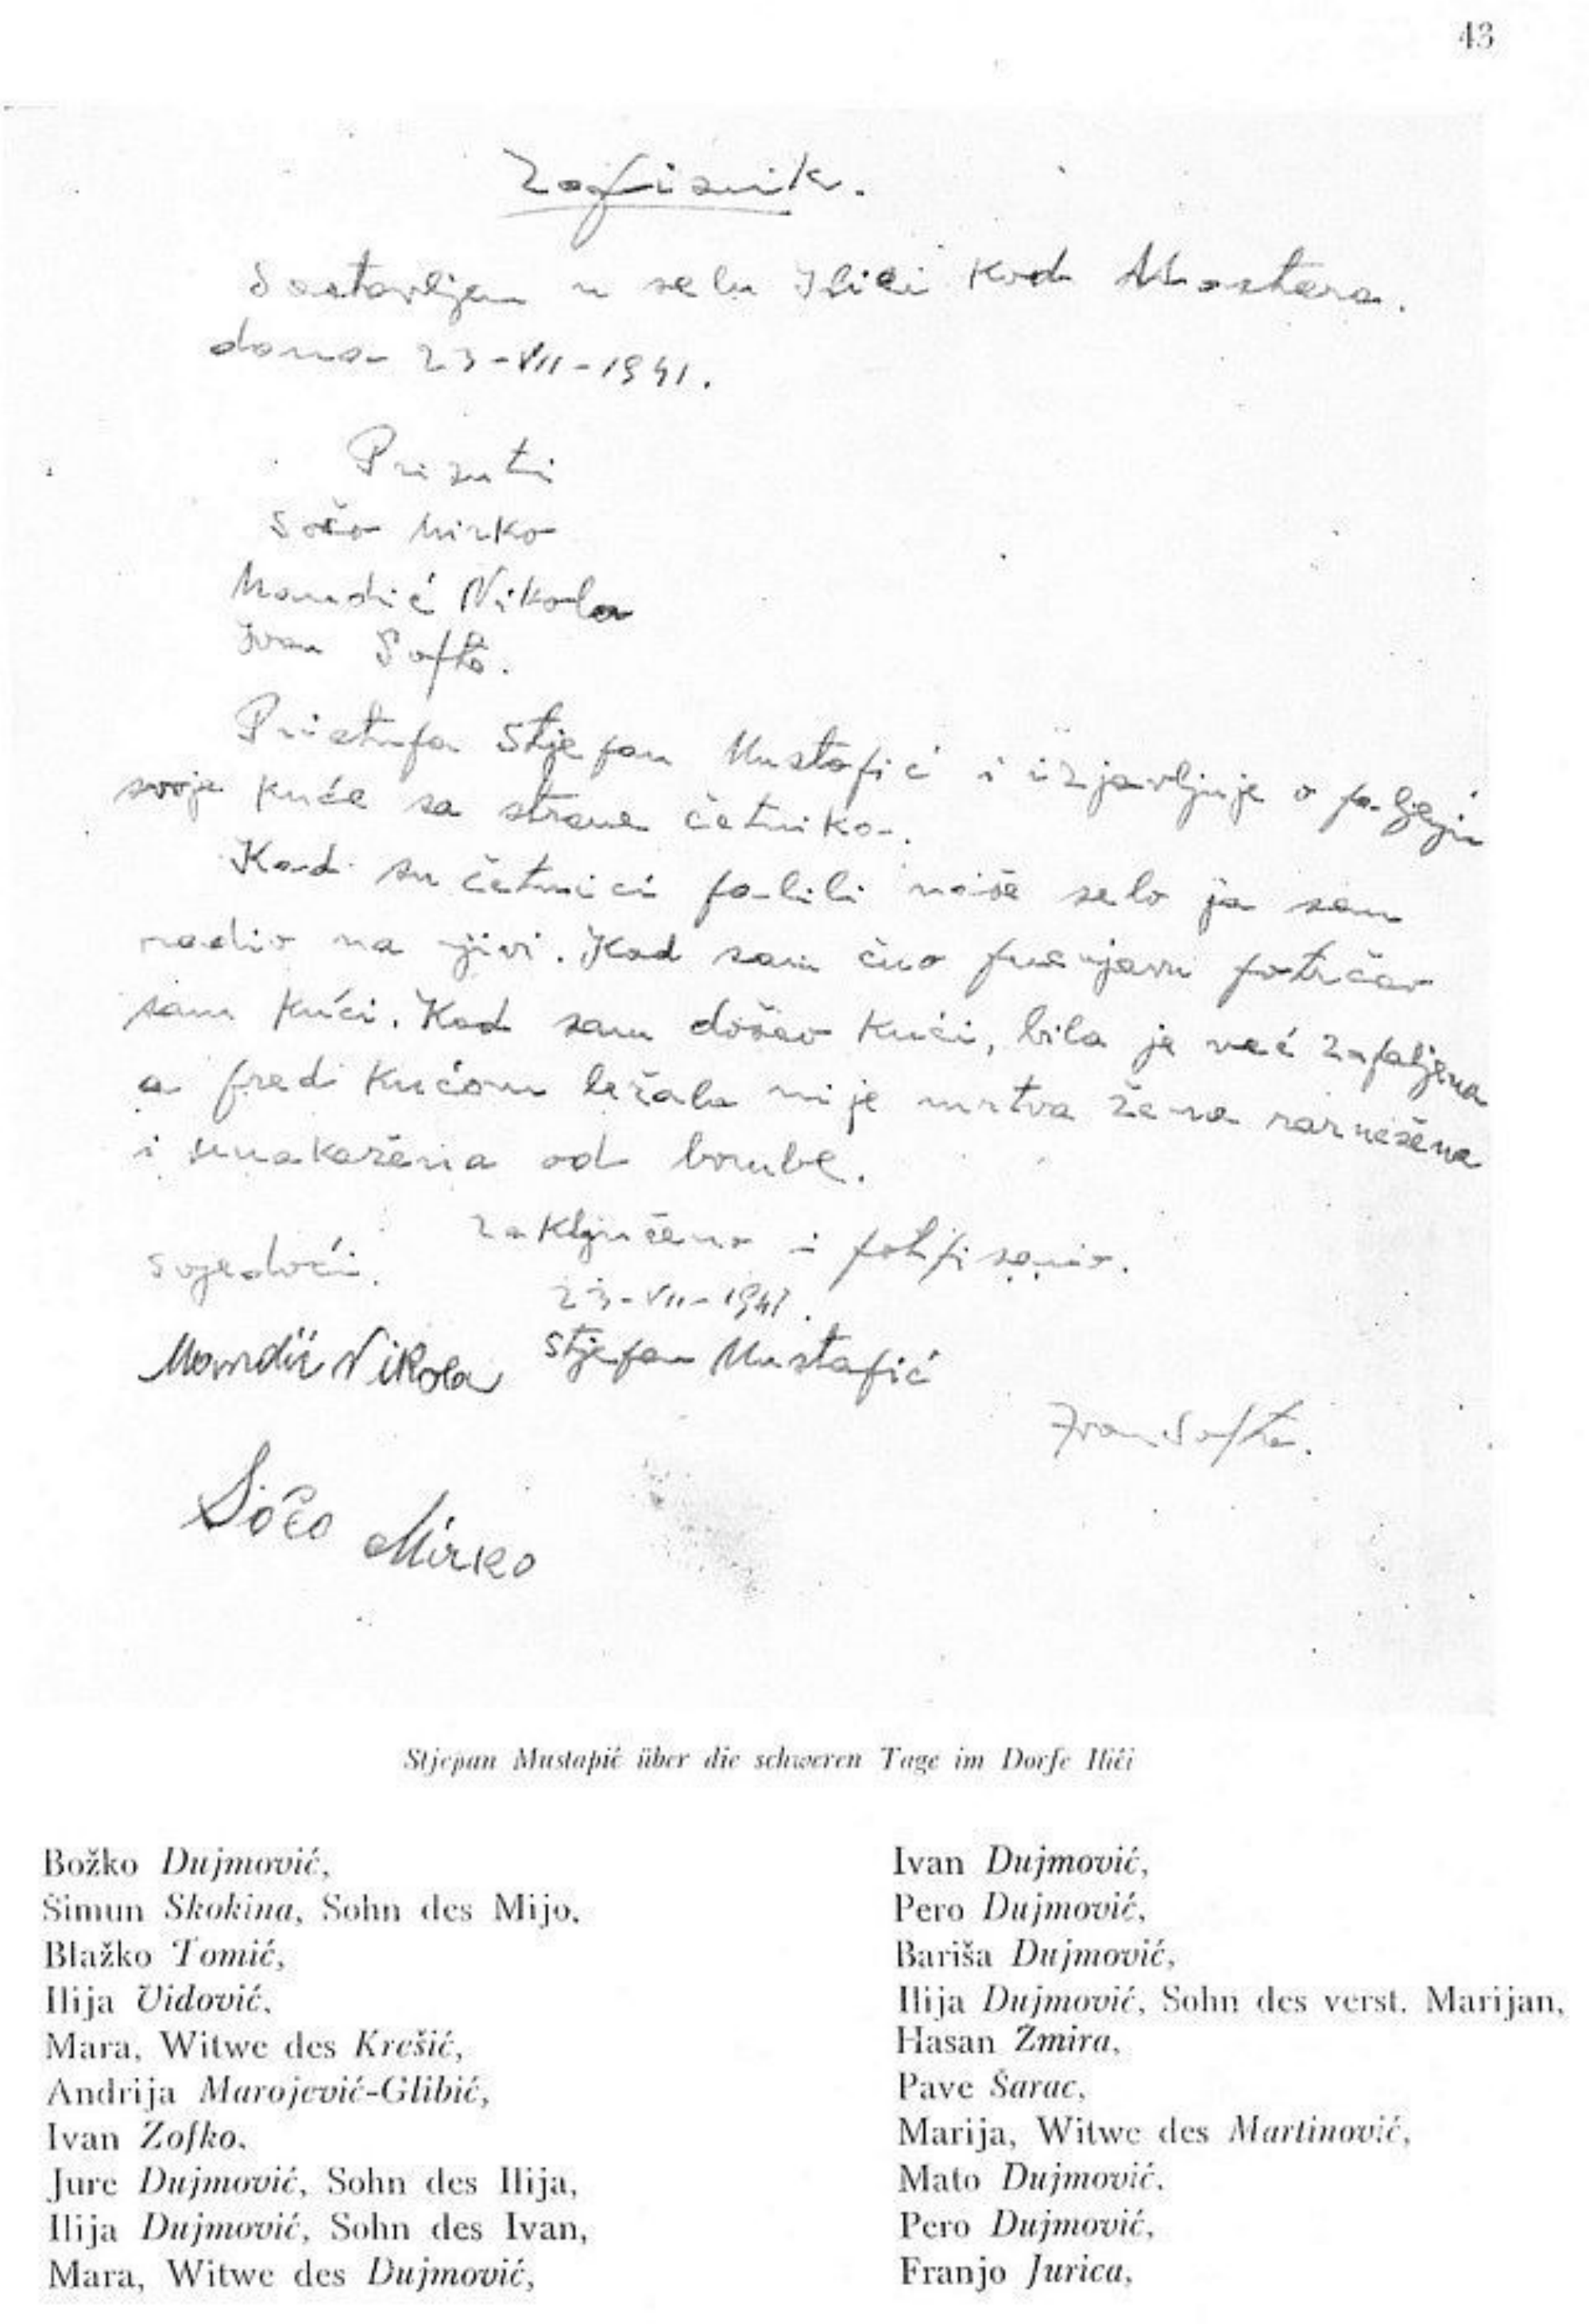 43
Zapisnik.
Sastavljen u selu Ilići kod Mostara.
dana 23-VII-1941.
Prisutni
Sočo Mirko
Mandić Nikola
Ivan Softa.
Pristupa Stjepan Mustapić i izjavljuje o paljenju
svoje kuće sa strane četnika.
Kad su četnici palili naše selo ja sam
radio na njivi. Kad sam čuo pucnjavu potrčao
sam kući. Kad sam došao kući, bila je već zapaljena
a pred kućom ležala mi je mrtva žena raznešena
i unakažena od bombe.
Zaključeno i potpisano.
svjedoci.
23-VII-1941.
Mandić Nikola Stjepan Mustapić
Ivan Softa.
Sočo Mirko
Stjepan Mustapić über die schweren Tage im Dorfe Ilići
Božko Dujmović,
Šimun Skokina, Sohn des Mijo,
Blažko Tomić,
Ilija Vidović,
Mara, Witwe des Krešić,
Andrija Marojević-Glibić,
Ivan Zofko,
Jure Dujmović, Sohn des Ilija,
Ilija Dujmović, Sohn des Ivan,
Mara, Witwe des Dujmović,
Ivan Dujmović,
Pero Dujmović,
Bariša Dujmović,
Ilija Dujmović, Sohn des verst. Marijan,
Hasan Zmira,
Pave Šarac,
Marija, Witwe des Martinović,
Mato Dujmović,
Pero Dujmović,
Franjo Jurica,